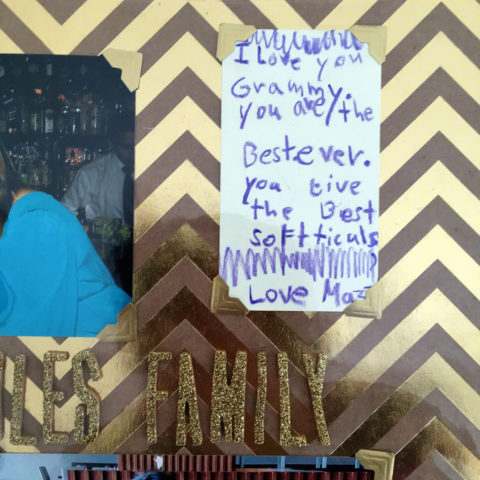 I Love you
Grammy.
you are the
Best ever.
you Give
the Best
softticuls
Love Maz
LES FAMILY